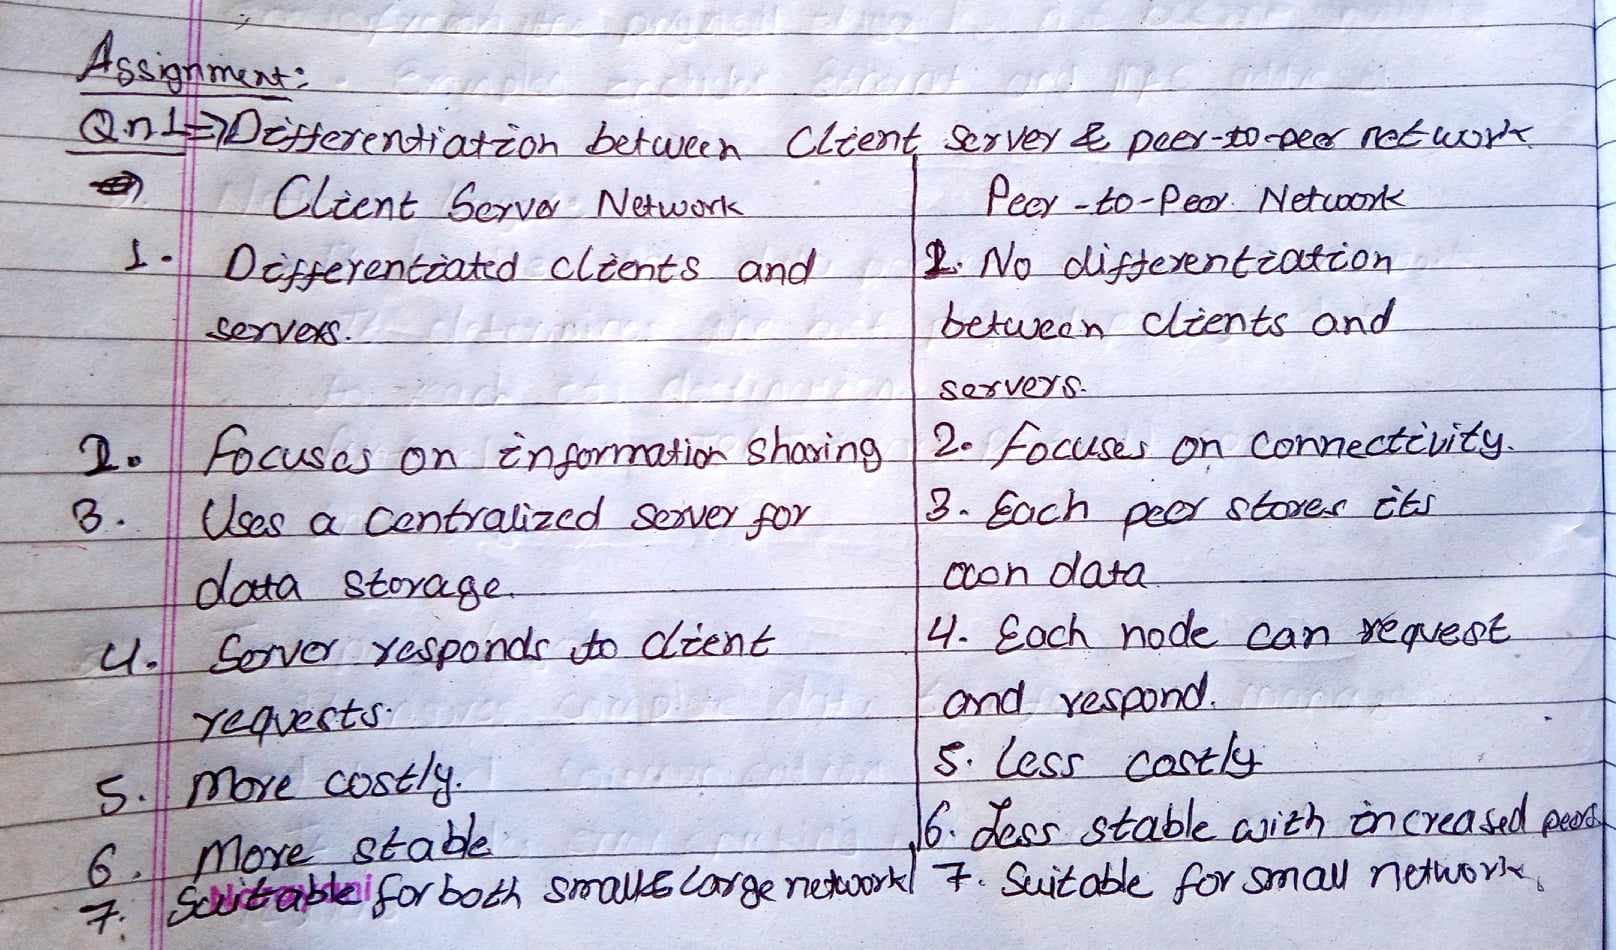 Assignment:
Qn1=> Differentiation between Client server & peer-to-peer network
Client Server Network
Peer-to-Peer Network
1. Differentiated clients and
servers.
1. No differentiation
between clients and
servers.
2. Focuses on information sharing
2. Focuses on connectivity.
3. Uses a centralized server for
data storage.
3. Each peer stores its
own data
4. Server responds to client
requests.
4. Each node can request
and respond.
5. More costly.
5. Less costly
6. More stable
6. Less stable with increased peers
7. Suitable for both small & large network
7. Suitable for small network.